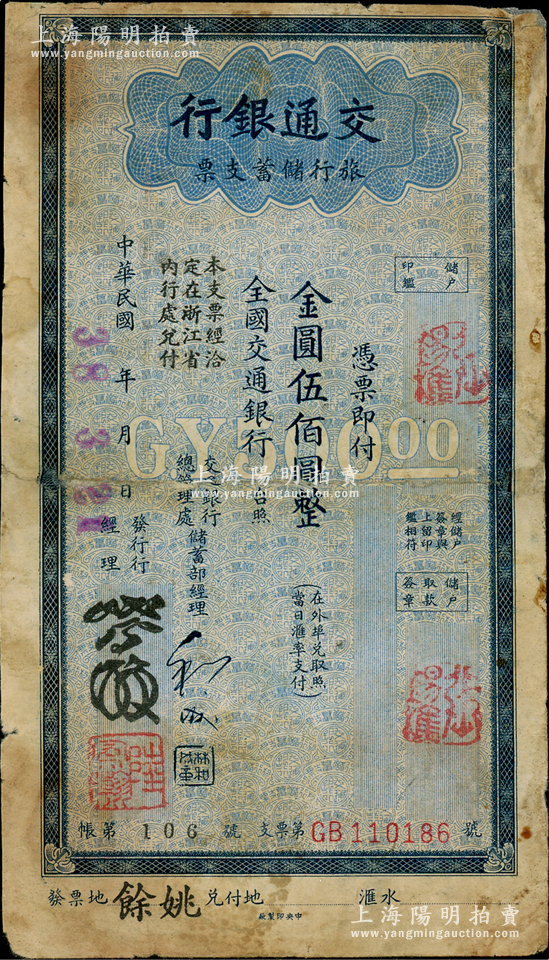 上海陽明拍賣
www.yangmingauction.com
交通銀行
旅行儲蓄支票
儲戶
印鑑
憑票即付
金圓伍佰圓整
GY50000
全國交通銀行 台照
本支票經洽
定在浙江省
內行處兌付
中華民國 38 年 3 月 日
經儲戶
簽章與
上留印
鑑相符
儲戶
取款
簽章
(在外埠兌取照
當日滙率支付)
交通銀行
總管理處
儲蓄部經理
發行行
經理
上海陽明拍賣
www.yangmingauction.com
帳第 106 號 支票第 GB110186 號
發票地 餘姚 兌付地 滙水
中央印製廠
上海陽明拍賣
www.yangmingauction.com